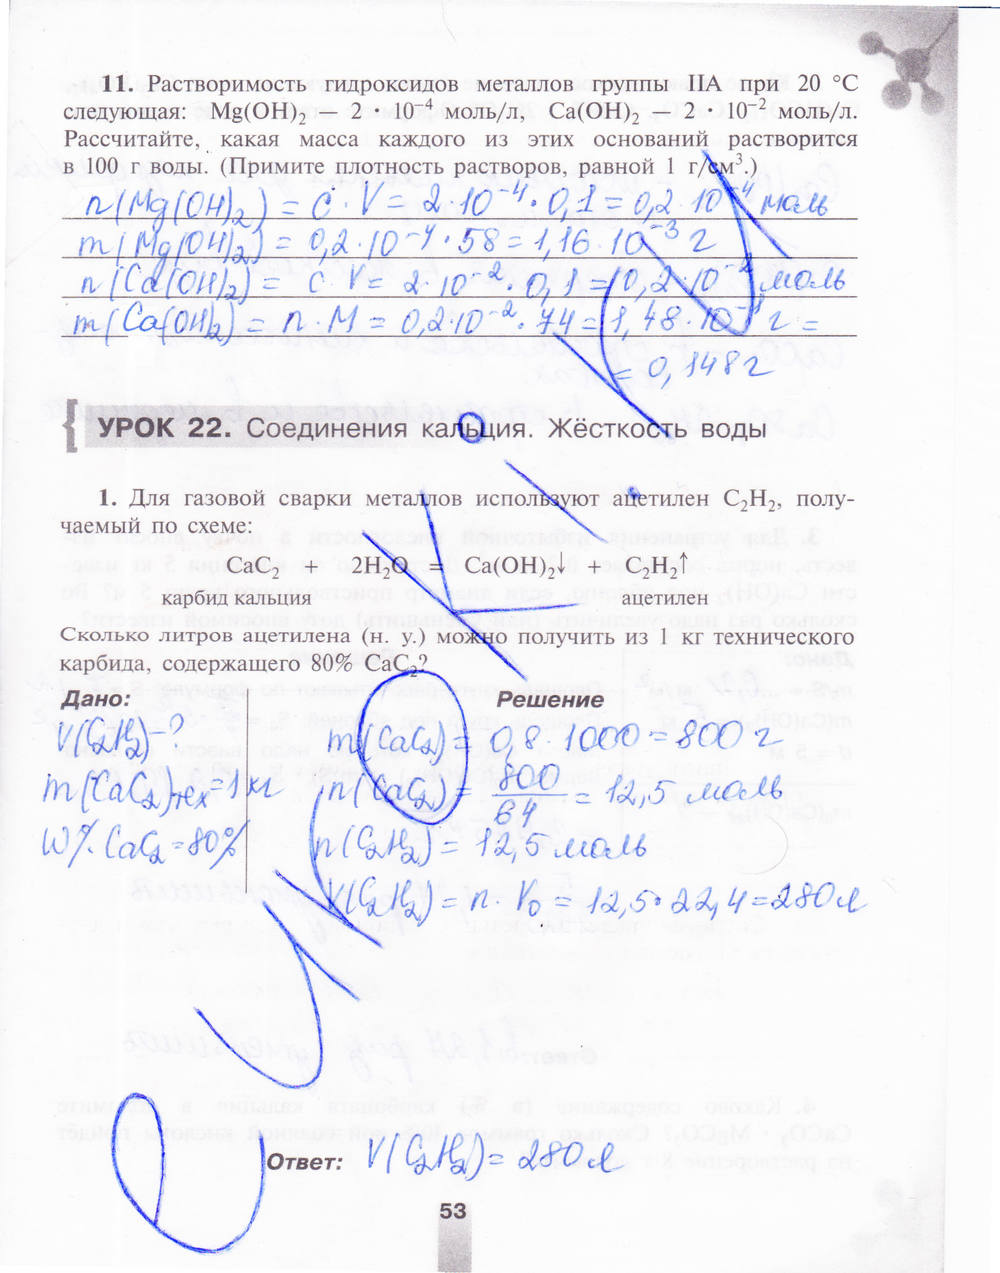 11. Растворимость гидроксидов металлов группы IIA при 20 °C
следующая: Mg(OH)₂ – 2 · 10⁻⁴ моль/л, Ca(OH)₂ – 2 · 10⁻² моль/л.
Рассчитайте, какая масса каждого из этих оснований растворится
в 100 г воды. (Примите плотность растворов, равной 1 г/см³.)
n(Mg(OH)₂) = C · V = 2·10⁻⁴ · 0,1 = 0,2·10⁻⁴ моль
m(Mg(OH)₂) = 0,2·10⁻⁴ · 58 = 1,16·10⁻³ г
n(Ca(OH)₂) = C · V = 2·10⁻² · 0,1 = 0,2·10⁻² моль
m(Ca(OH)₂) = n · M = 0,2·10⁻² · 74 = 1,48·10⁻¹ г =
= 0,148 г
УРОК 22. Соединения кальция. Жёсткость воды
1. Для газовой сварки металлов используют ацетилен C₂H₂, полу-
чаемый по схеме:
CaC₂ + 2H₂O = Ca(OH)₂↓ + C₂H₂↑
карбид кальция ацетилен
Сколько литров ацетилена (н. у.) можно получить из 1 кг технического
карбида, содержащего 80% CaC₂?
Дано: Решение
V(C₂H₂) - ? m(CaC₂) = 0,8 · 1000 = 800 г
m(CaC₂)тех = 1 кг n(CaC₂) = 800/64 = 12,5 моль
W% CaC₂ = 80% n(C₂H₂) = 12,5 моль
V(C₂H₂) = n · V₀ = 12,5 · 22,4 = 280 л
Ответ: V(C₂H₂) = 280 л
53